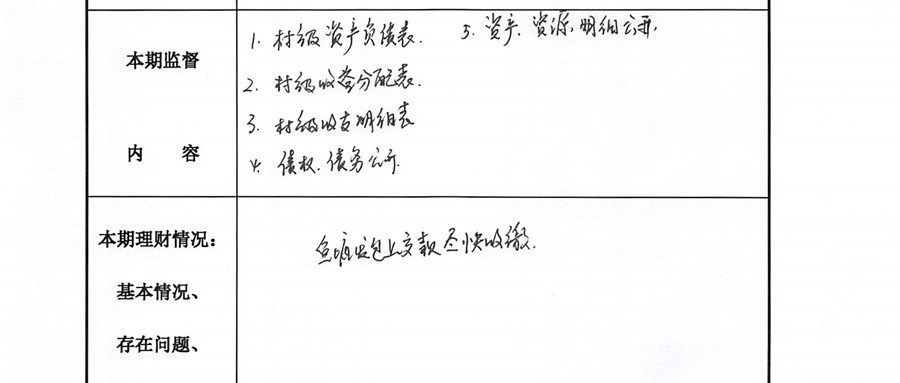 本期监督
内 容
1. 村级资产负债表. 5. 资产、资源明细公开.
2. 村级收益分配表.
3. 村级收支明细表
4. 债权、债务公开.
本期理财情况：
基本情况、
存在问题、
鱼塘发包上交款尽快收缴.